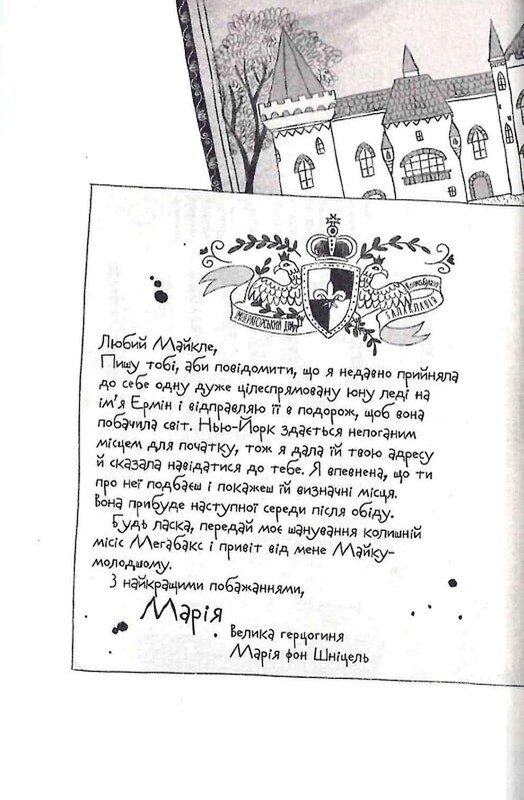 ІМПЕРАТОРСЬКИЙ ДІМ
БАЛАКЛАВІЯ
Любий Майкле,
Пишу тобі, аби повідомити, що я недавно прийняла
до себе одну дуже цілеспрямовану юну леді на
ім'я Ермін і відправляю її в подорож, щоб вона
побачила світ. Нью-Йорк здається непоганим
місцем для початку, тож я дала їй твою адресу
й сказала навідатися до тебе. Я впевнена, що ти
про неї подбаєш і покажеш їй визначні місця.
Вона прибуде наступної середи після обіду.
Будь ласка, передай моє шанування колишній
місіс Мегабакс і привіт від мене Майку-
молодшому.
З найкращими побажаннями,
Марія
Велика герцогиня
Марія фон Шніцель